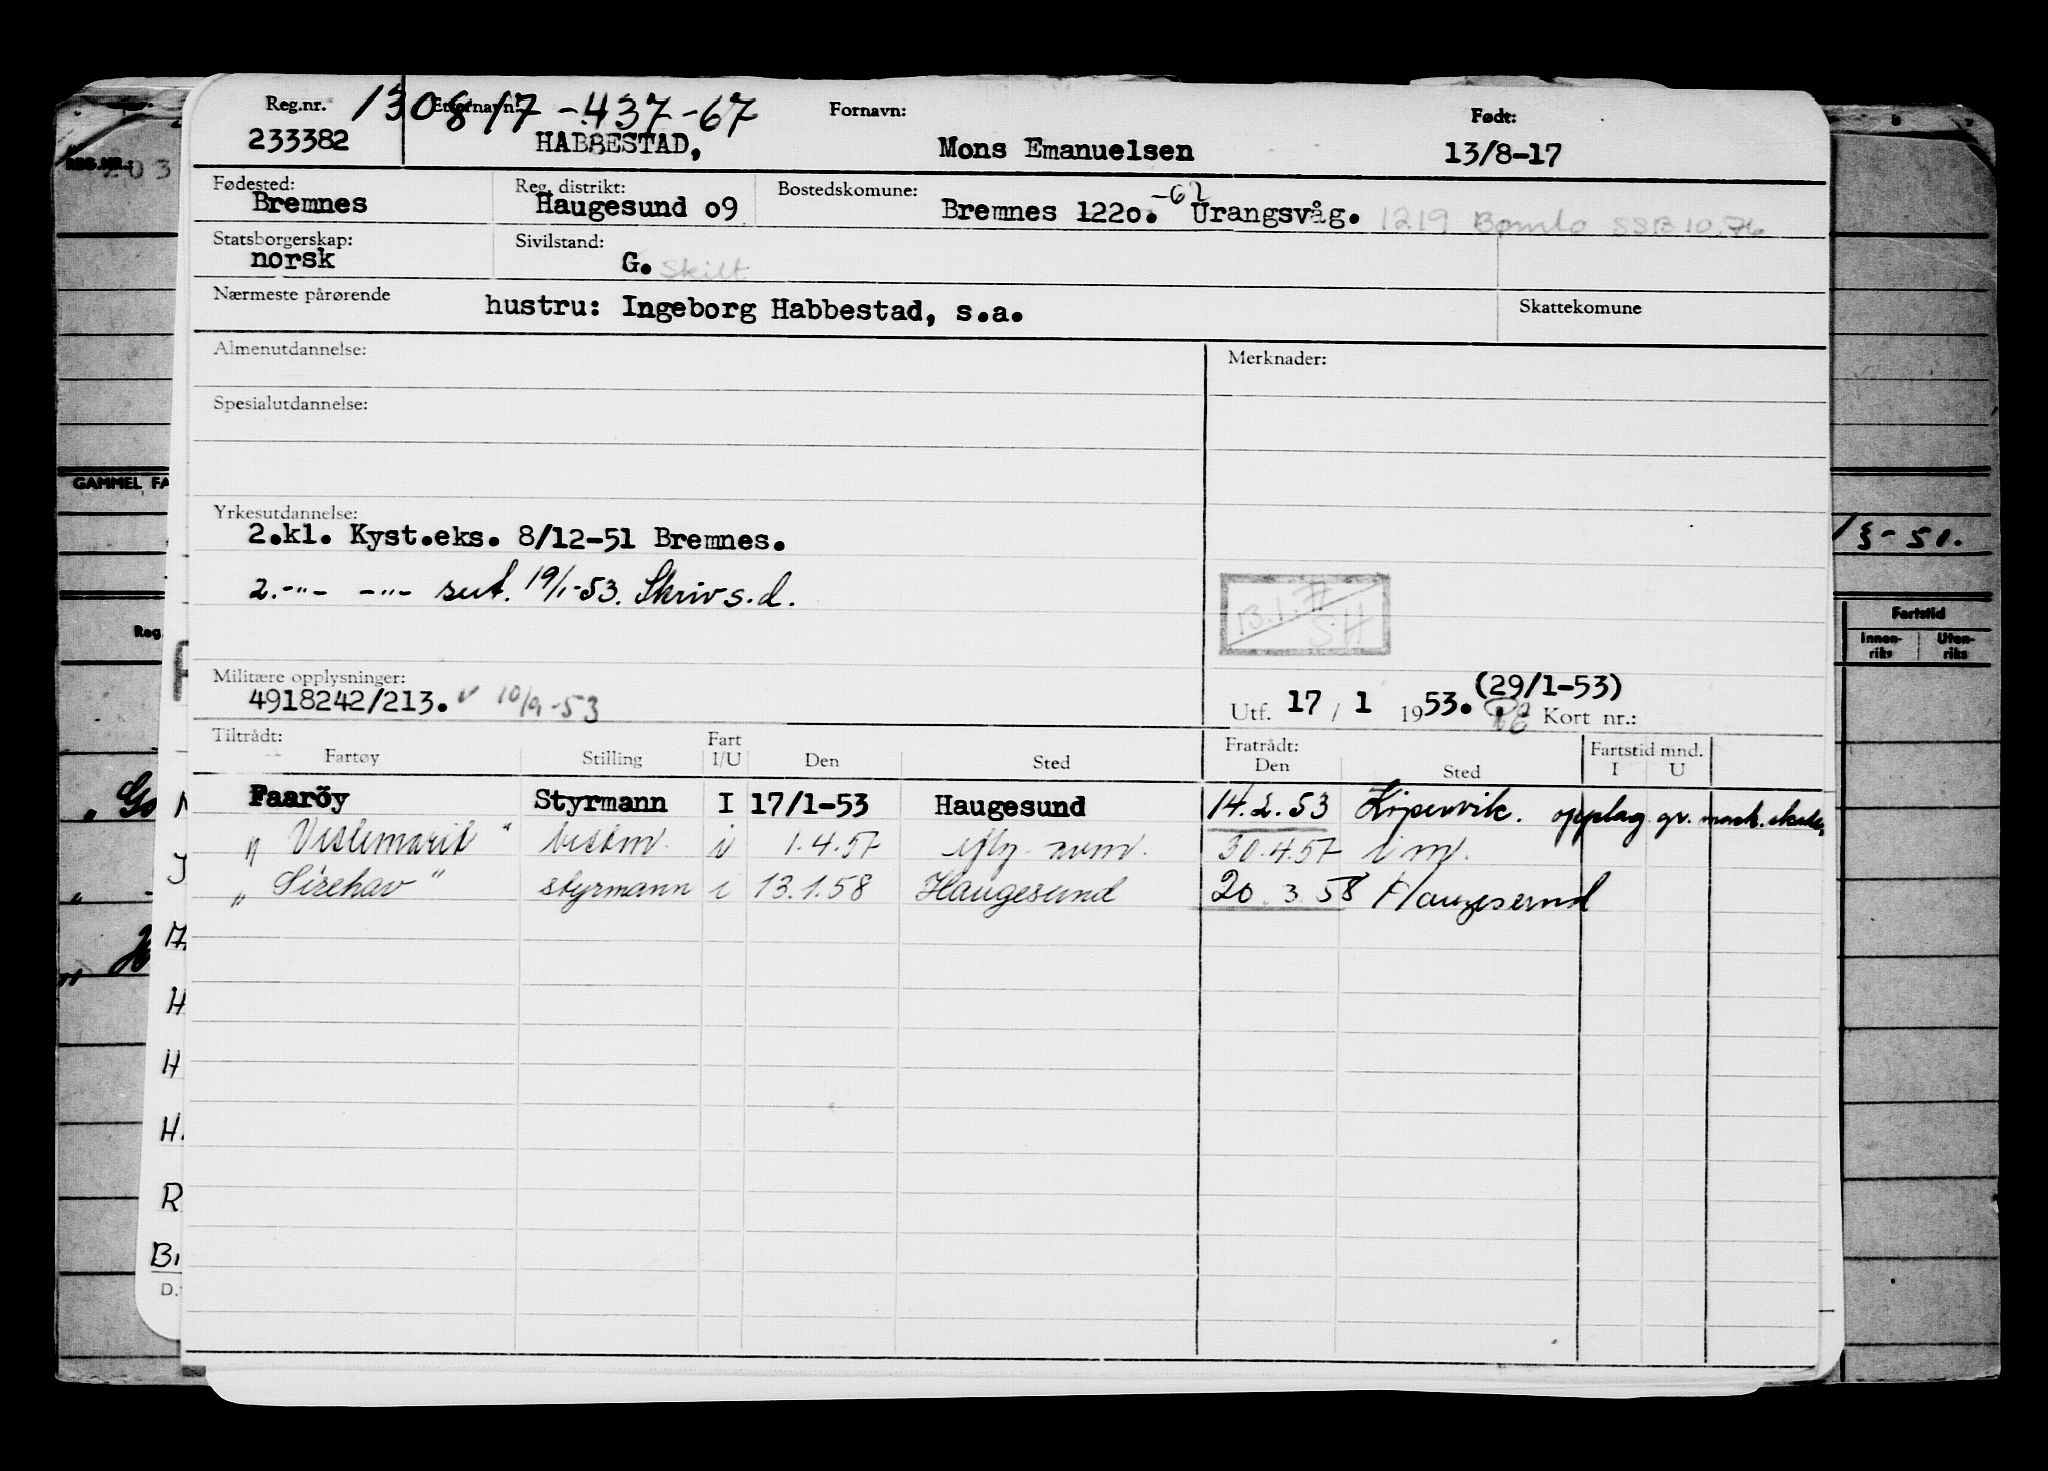 Reg.nr. 130817-437-67 Etternavn: Fornavn: Født:
233382 HABBESTAD, Mons Emanuelsen 13/8-17
Fødested: Reg. distrikt: Bostedskomune:
Bremnes Haugesund o9 Bremnes 1220. -62 Urangsvåg. 1219 Bømlo SSB 10.76
Statsborgerskap: Sivilstand:
norsk G. Skilt
Nærmeste pårørende hustru: Ingeborg Habbestad, s.a. Skattekomune
Almenutdannelse: Merknader:
Spesialutdannelse:
GAMMEL FA
Yrkesutdannelse:
2.kl. Kyst.eks. 8/12-51 Bremnes.
2.-"- -"- sert. 19/1-53. Skriv s.d.
B.I.7
SH
Militære opplysninger:
4918242/213. v 10/9-53
Utf. 17 / 1 1953. (29/1-53) Kort nr.:
Tiltrådt: Fratrådt: Fartstid mnd.
Fartøy Stilling Fart I/U Den Sted Den Sted I U
Faaröy Styrmann I 17/1-53 Haugesund 14.2.53 Kopervik. opplag gr. mask.skade,
" Vestemarit " bestm. i 1.4.57 30.4.57 i m.
" Sirehav " styrmann i 13.1.58 Haugesund 20.3.58 Haugesund
Fartstid
Innen-riks Uten-riks